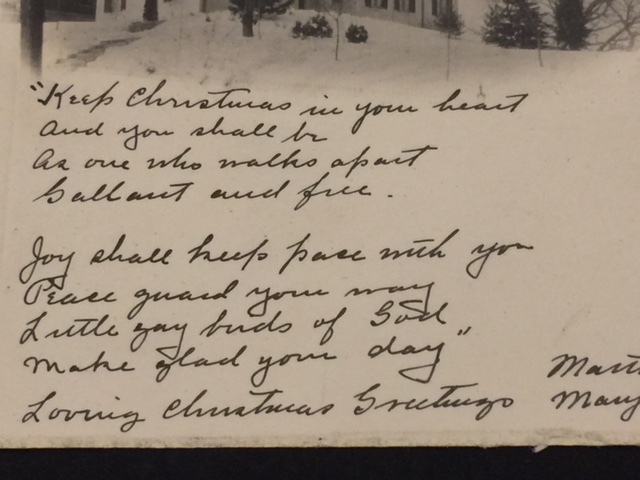 "Keep Christmas in your heart
And you shall be
As one who walks apart
Gallant and free.
Joy shall keep pace with you
Peace guard your way
Little gay birds of God
Make glad your day"
Loving Christmas Greetings
Mary